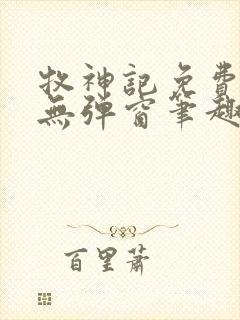 牧神記免費
無彈窗筆趣
百里蕭